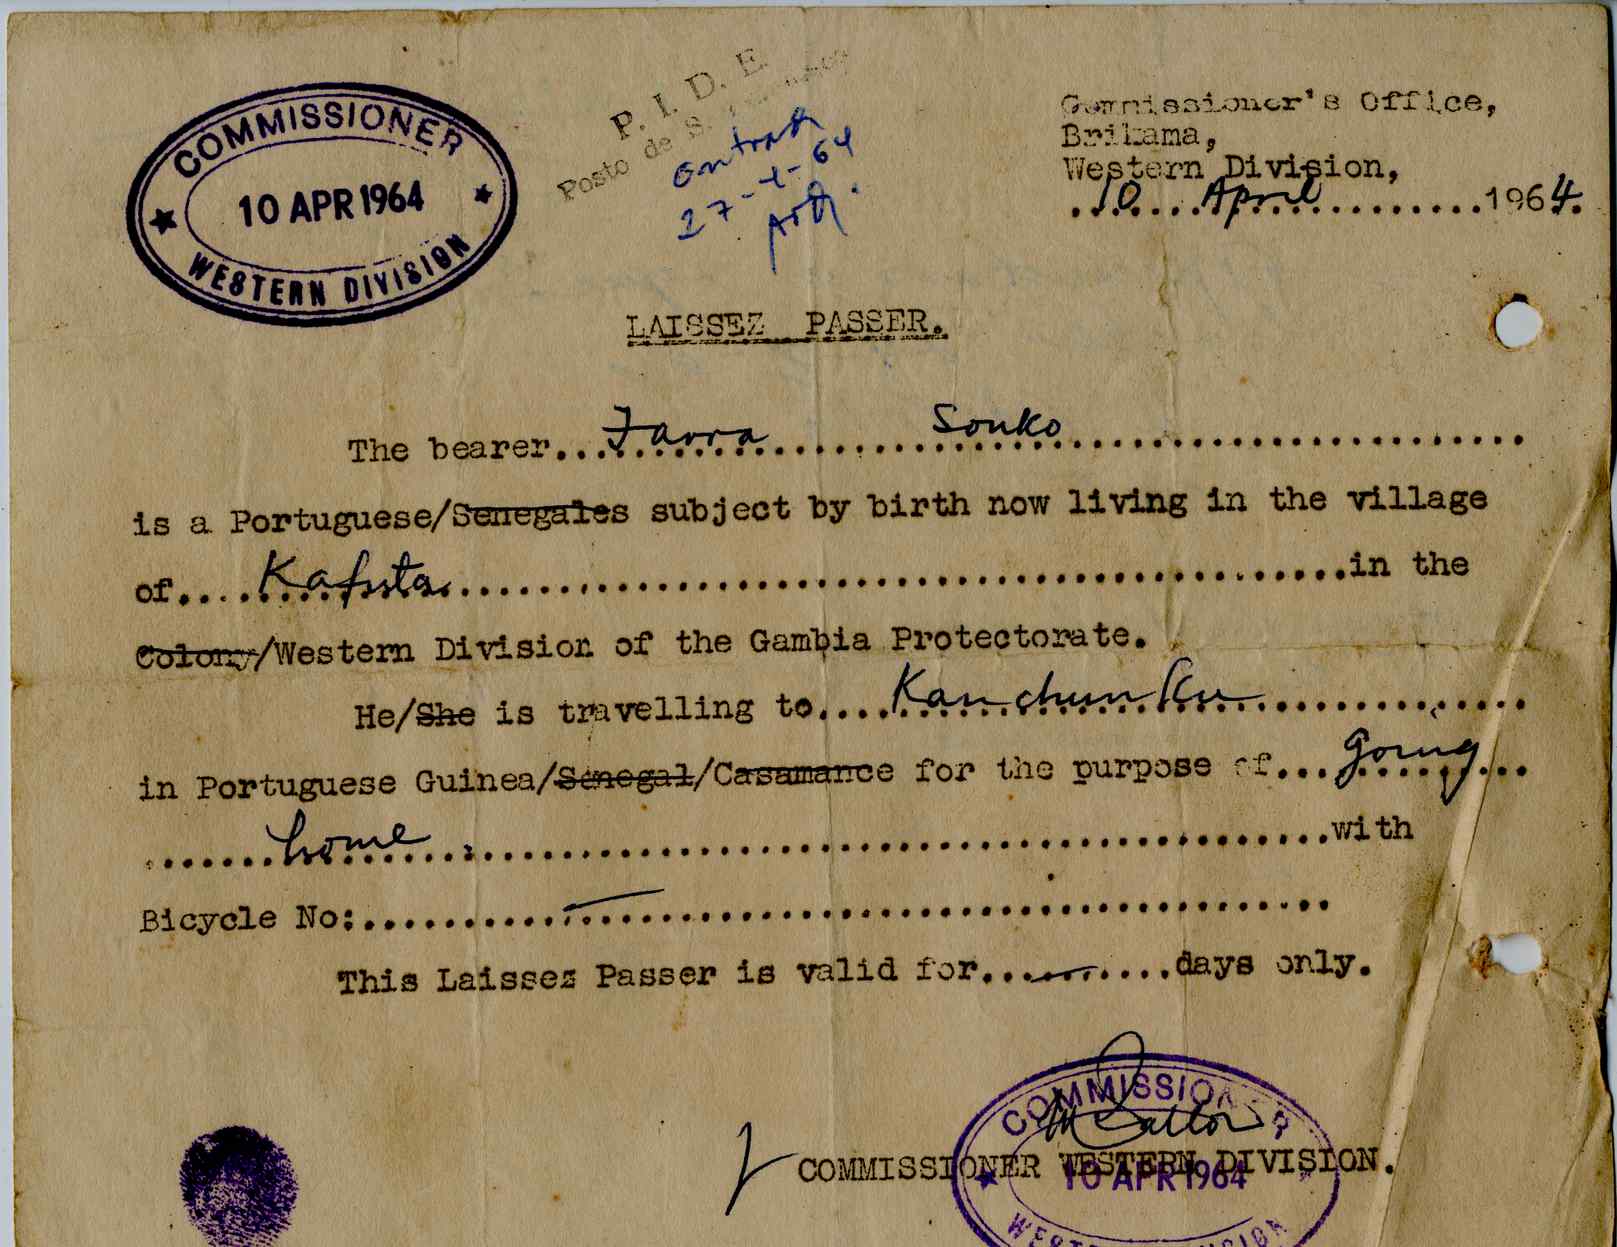 COMMISSIONER
10 APR 1964
WESTERN DIVISION
P. I. D. E.
Posto de S.
27-4-64
Commissioner's Office,
Brikama,
Western Division,
10 April 1964.
LAISSEZ PASSER.
The bearer... Jarra Sonko
is a Portuguese/Senegales subject by birth now living in the village
of.... Kafuta ....in the
Colony/Western Division of the Gambia Protectorate.
He/She is travelling to.... Kanchunku
in Portuguese Guinea/Senegal/Casamance for the purpose of... going
home ....with
Bicycle No:....
This Laissez Passer is valid for....days only.
COMMISSIONER WESTERN DIVISION.
COMMISSIONER
10 APR 1964
WESTERN DIVISION